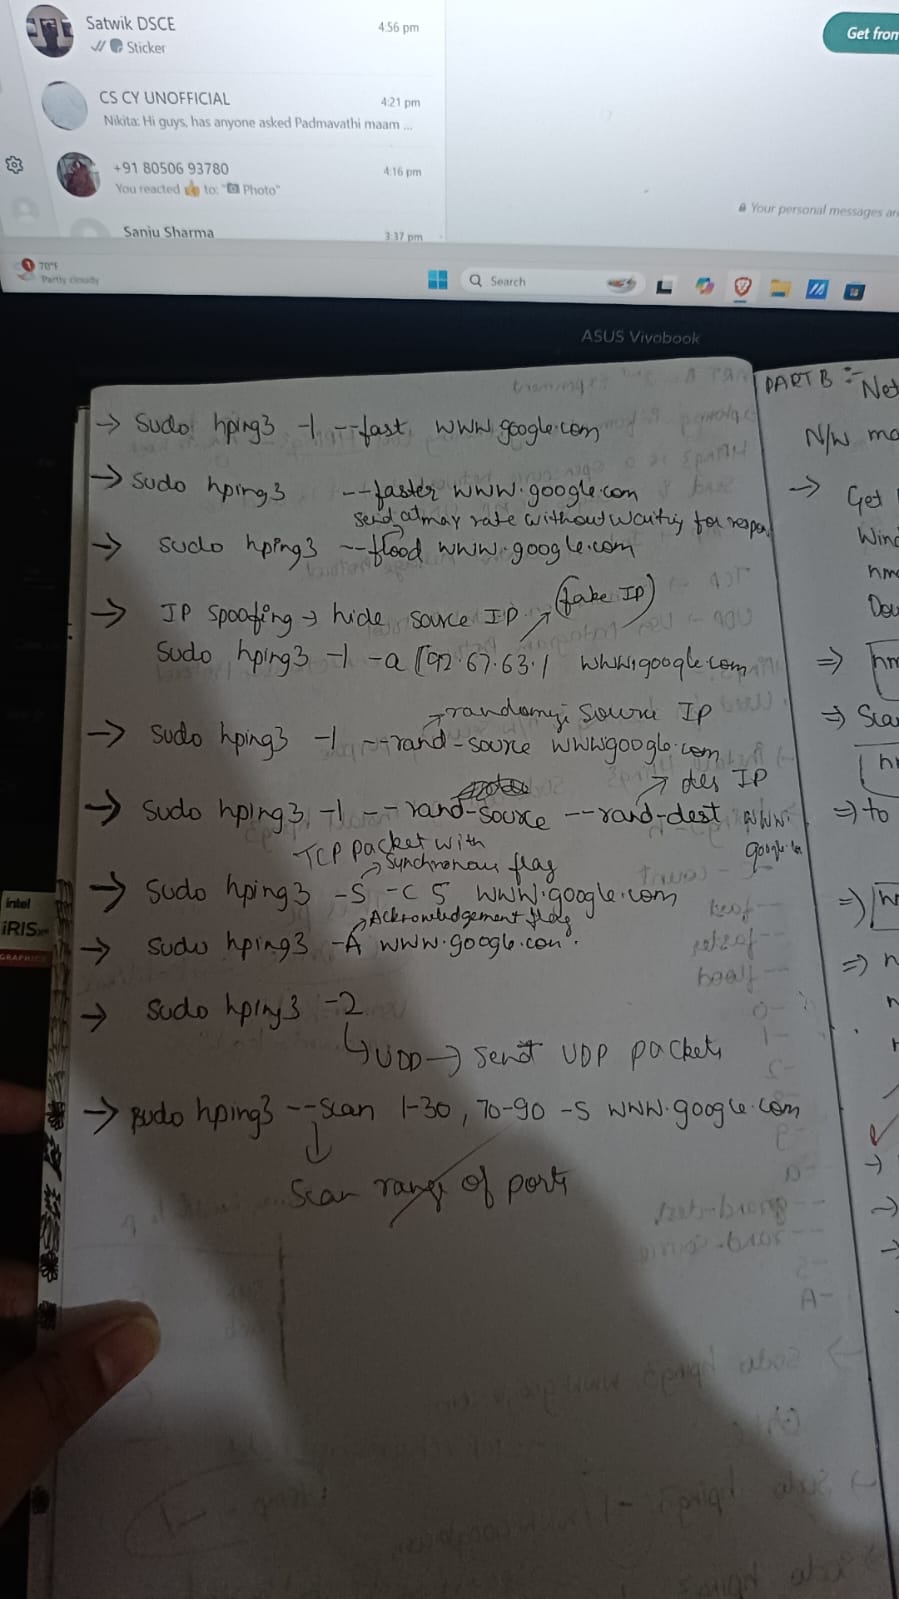 Satwik DSCE
4:56 pm
Sticker
Get from
CS CY UNOFFICIAL
4:21 pm
Nikita: Hi guys, has anyone asked Padmavathi maam ...
+91 80506 93780
4:16 pm
You reacted 👍 to: "📷 Photo"
Your personal messages are
Sanju Sharma
3:37 pm
1
70°F
Partly cloudy
Search
ASUS Vivobook
PART B :- Net
→ Sudo hping3 -1 --fast www.google.com
N/W ma
→ Sudo hping3 --faster www.google.com
→ Get
send at max rate without waiting for respo
Wind
→ sudo hping3 --flood www.google.com
nm
Dow
→ IP spoofing → hide source IP (fake IP)
Sudo hping3 -1 -a 192.67.63.1 www.google.com
⇒ nm
→ randomize source IP
⇒ Sca
→ sudo hping3 -1 --rand-source www.google.com
→ des IP
→ sudo hping3 -1 --rand-source --rand-dest www.
google.com
⇒ to
TCP packet with
→ Synchronous flag
→ sudo hping3 -S -c 5 www.google.com
→ Acknowledgement flag
→ sudo hping3 -A www.google.com.
→ sudo hping3 -2
↳ UDD → send UDP packets
→ sudo hping3 --scan 1-30, 70-90 -S www.google.com
↓
Scan range of ports
intel
iRIS Xe
GRAPHICS